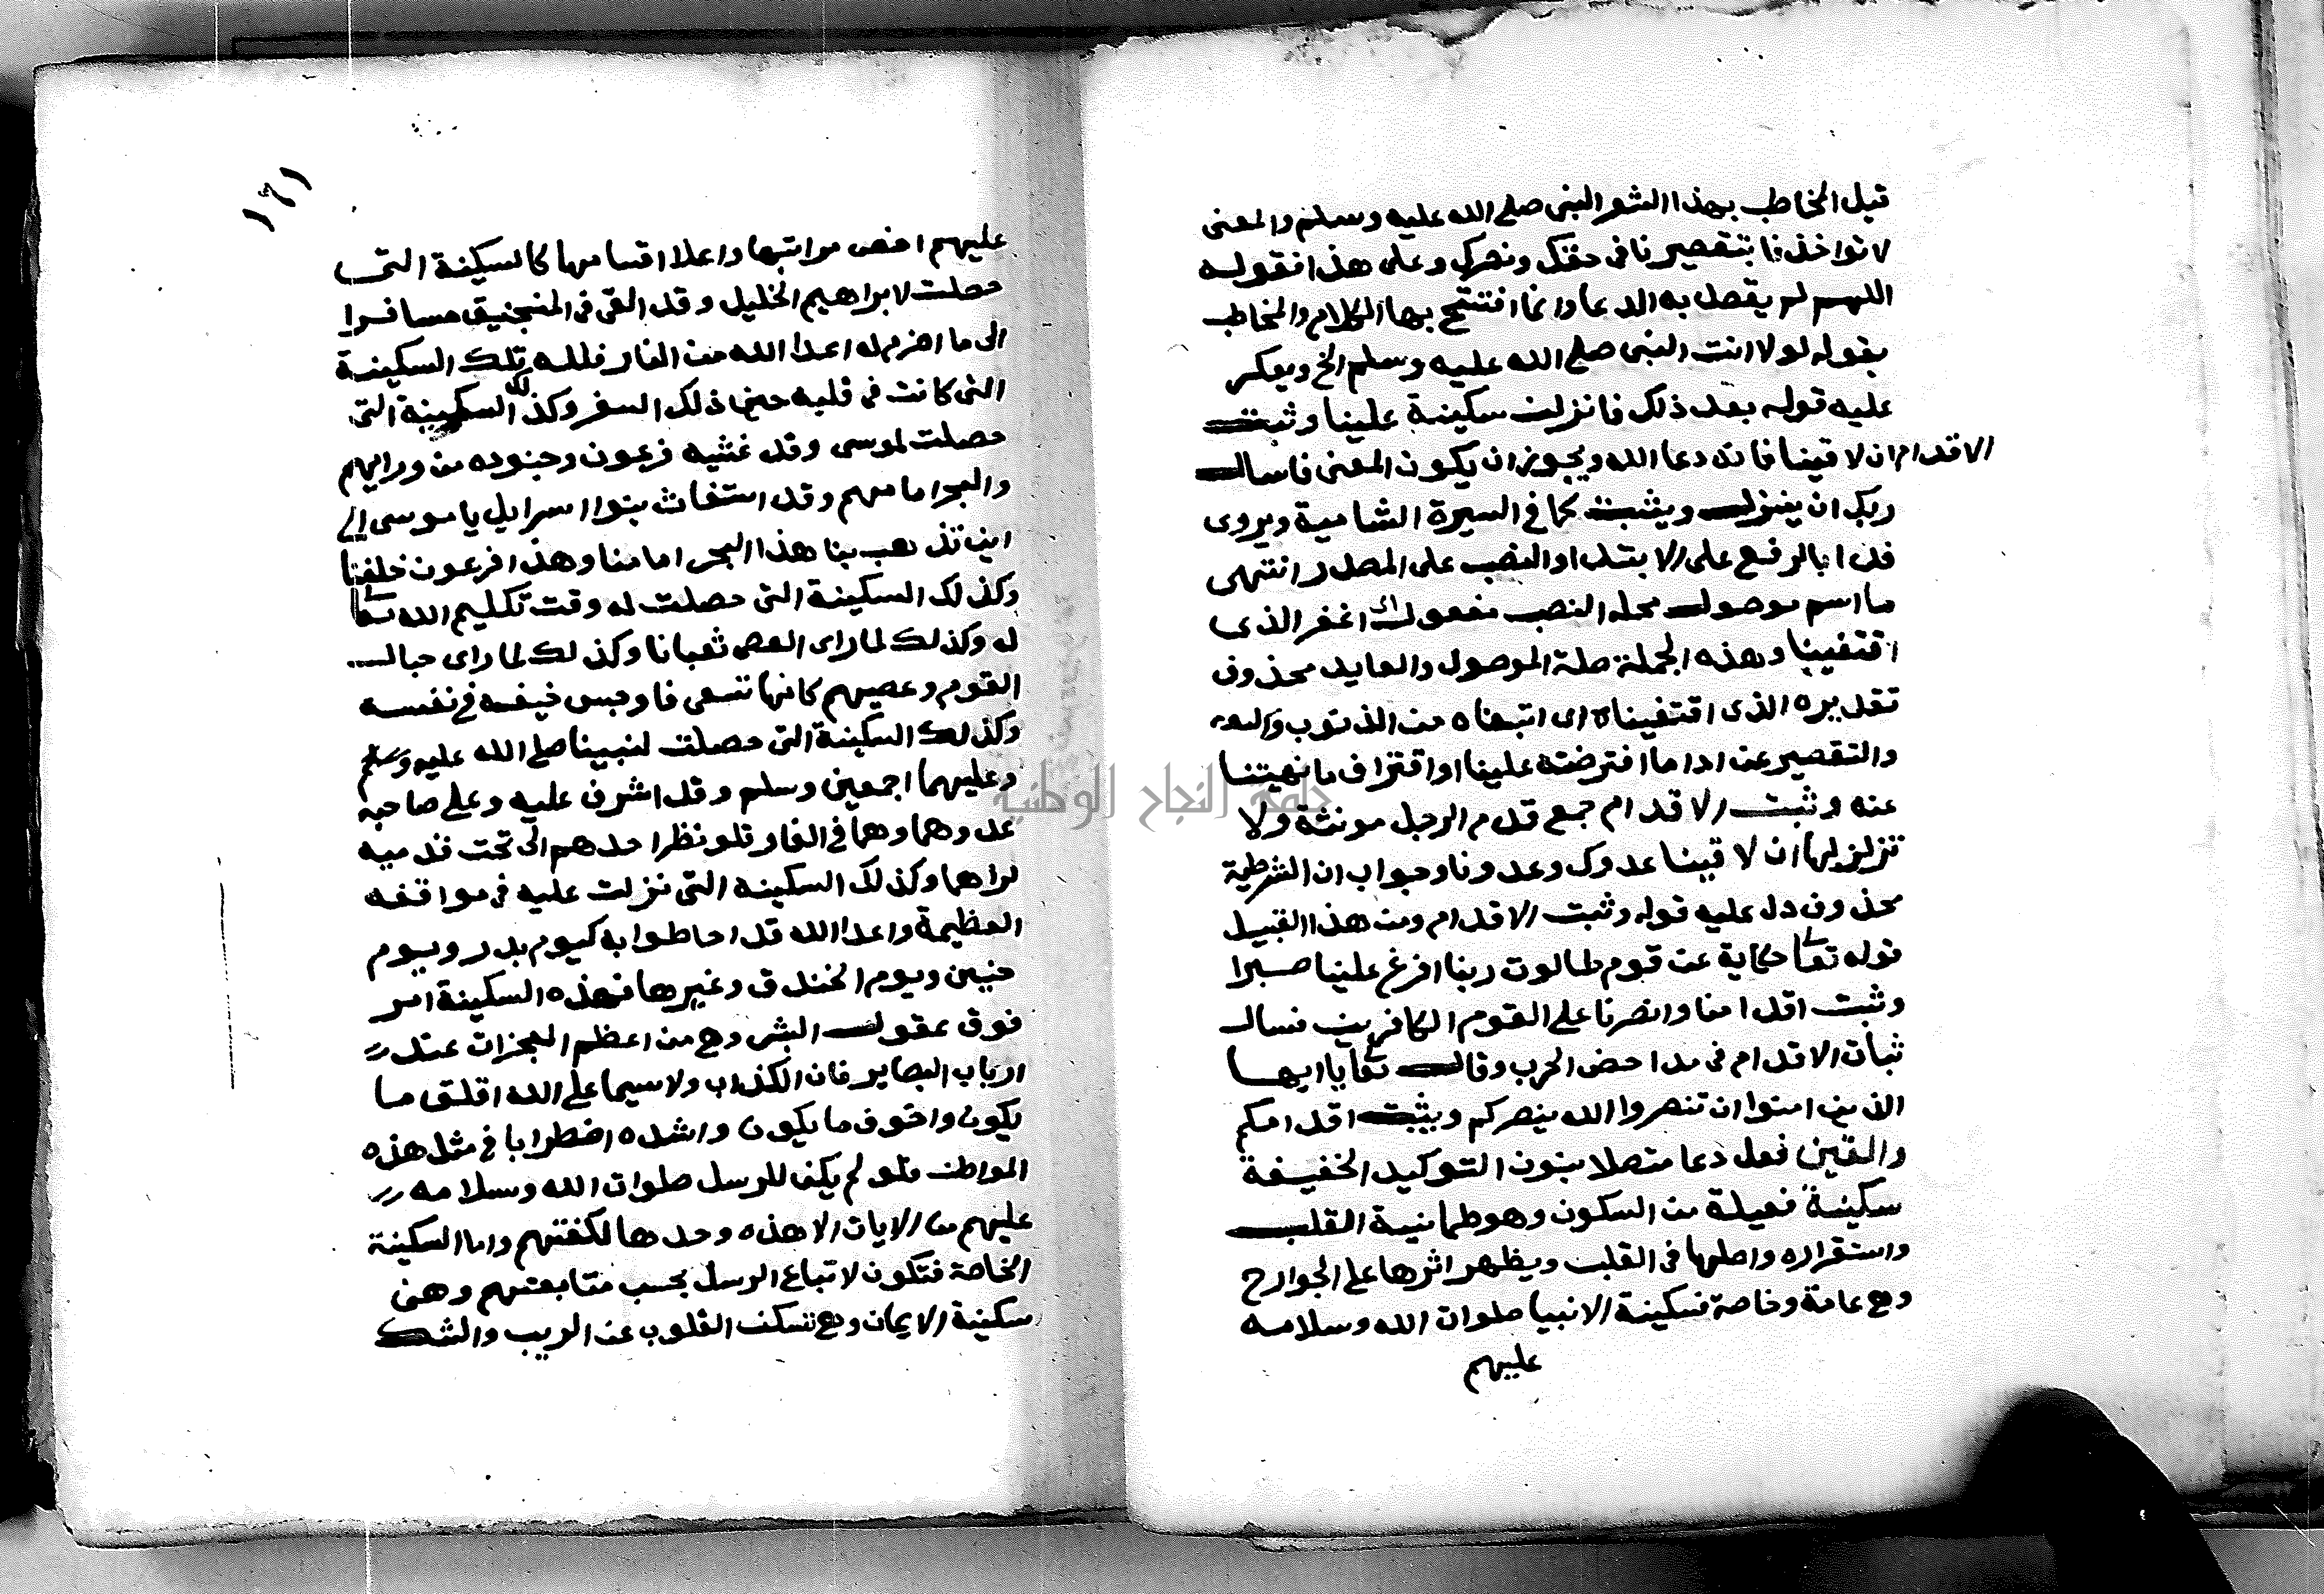 قبل المخاطب بهذا الشعر النبى صلى الله عليه وسلم والمعنى
لا تواخذنا بتقصيرنا فى حقك ونصرك وعلى هذا فقوله
اللهم لم يقصد به الدعا وانما افتتح بها الكلام والمخاطب
بقوله لولا انت النبى صلى الله عليه وسلم الخ ويعكر
عليه قوله بعد ذلك فانزلن سكينة علينا وثبت
الاقدام ان لاقينا فانه دعا الله ويجوز ان يكون المعنى فاسال
ربك ان ينزل ويثبت كما فى السيرة الشامية ويروى
فدا بالرفع على الابتدا والنصب على المصدر انتهى
ما اسم موصول محله النصب مفعول اى اغفر الذى
اقتفينا وهذه الجملة صلة الموصول والعايد محذوف
تقديره الذى اقتفيناه اى اتبعناه من الذنوب
والتقصير عن ادا ما افترضته علينا او اقتراف ما نهيتنا
عنه وثبت الاقدام جمع قدم الرجل مونثة ولا
تزلزلها ان لاقينا عدوك وعدونا وجواب ان الشرطية
محذوف دل عليه قوله وثبت الاقدام ومن هذا القبيل
قوله تعا حكاية عن قوم طالوت ربنا افرغ علينا صبرا
وثبت اقدامنا وانصرنا على القوم الكافرين فسال
ثبات الاقدام فى مداحض الحرب وقال تعا يا ايها
الذين امنوا ان تنصروا الله ينصركم ويثبت اقدامكم
والقين فعل دعا متصلا بنون التوكيد الخفيفة
سكينة فعيلة من السكون وهو طمانية القلب
واستقراره واصلها فى القلب ويظهر اثرها على الجوارح
وهى عامة وخاصة فسكينة الانبيا صلوات الله وسلامه
عليهم
١٦١
عليهم اخص مراتبها واعلا اقسامها كالسكينة التى
حصلت لابراهيم الخليل وقد القى فى المنجنيق مسافرا
الى ما اضرم له اعدا الله من النار فلله تلك السكينة
التى كانت فى قلبه حين ذلك السفر وكذلك السكينة التى
حصلت لموسى وقد غشيه فرعون وجنوده من ورايهم
والبحر امامهم وقد استغاث بنوا اسرايل يا موسى الى
اين تذهب بنا هذا البحر امامنا وهذا فرعون خلفنا
وكذلك السكينة التى حصلت له وقت تكليم الله تعا
له وكذلك لما راى العصى ثعبانا وكذلك لما راى حبال
القوم وعصيهم كانها تسعى فاوجس خيفة فى نفسه
وكذلك السكينة التى حصلت لنبينا صلى الله عليه وسلم
وعليهما اجمعين وسلم وقد اشرف عليه وعلى صاحبه
عدوهما وهما فى الغار فلو نظر احدهم الى تحت قدميه
لراهما وكذلك السكينة التى نزلت عليه فى مواقفه
العظيمة واعدا الله قد احاطوا به كيوم بدر ويوم
حنين ويوم الخندق وغيرها فهذه السكينة امر
فوق عقول البشر وهى من اعظم المعجزات عند
ارباب البصاير فان الكذاب ولا سيما على الله اقلق ما
يكون واخوف ما يكون واشده اضطرابا فى مثل هذه
المواطن فلو لم يكن للرسل صلوات الله وسلامه
عليهم من الايات الا هذه وحدها لكفتهم واما السكينة
الخاصة فتكون لاتباع الرسل بحسب متابعتهم وهى
سكينة الايمان وهى تسكن القلوب عن الريب والشك
جامعة النجاح الوطنية